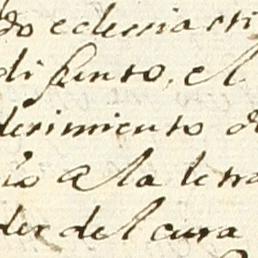 do eclesiasti
difunto, el
derimiento d
io a la letra
der del cura